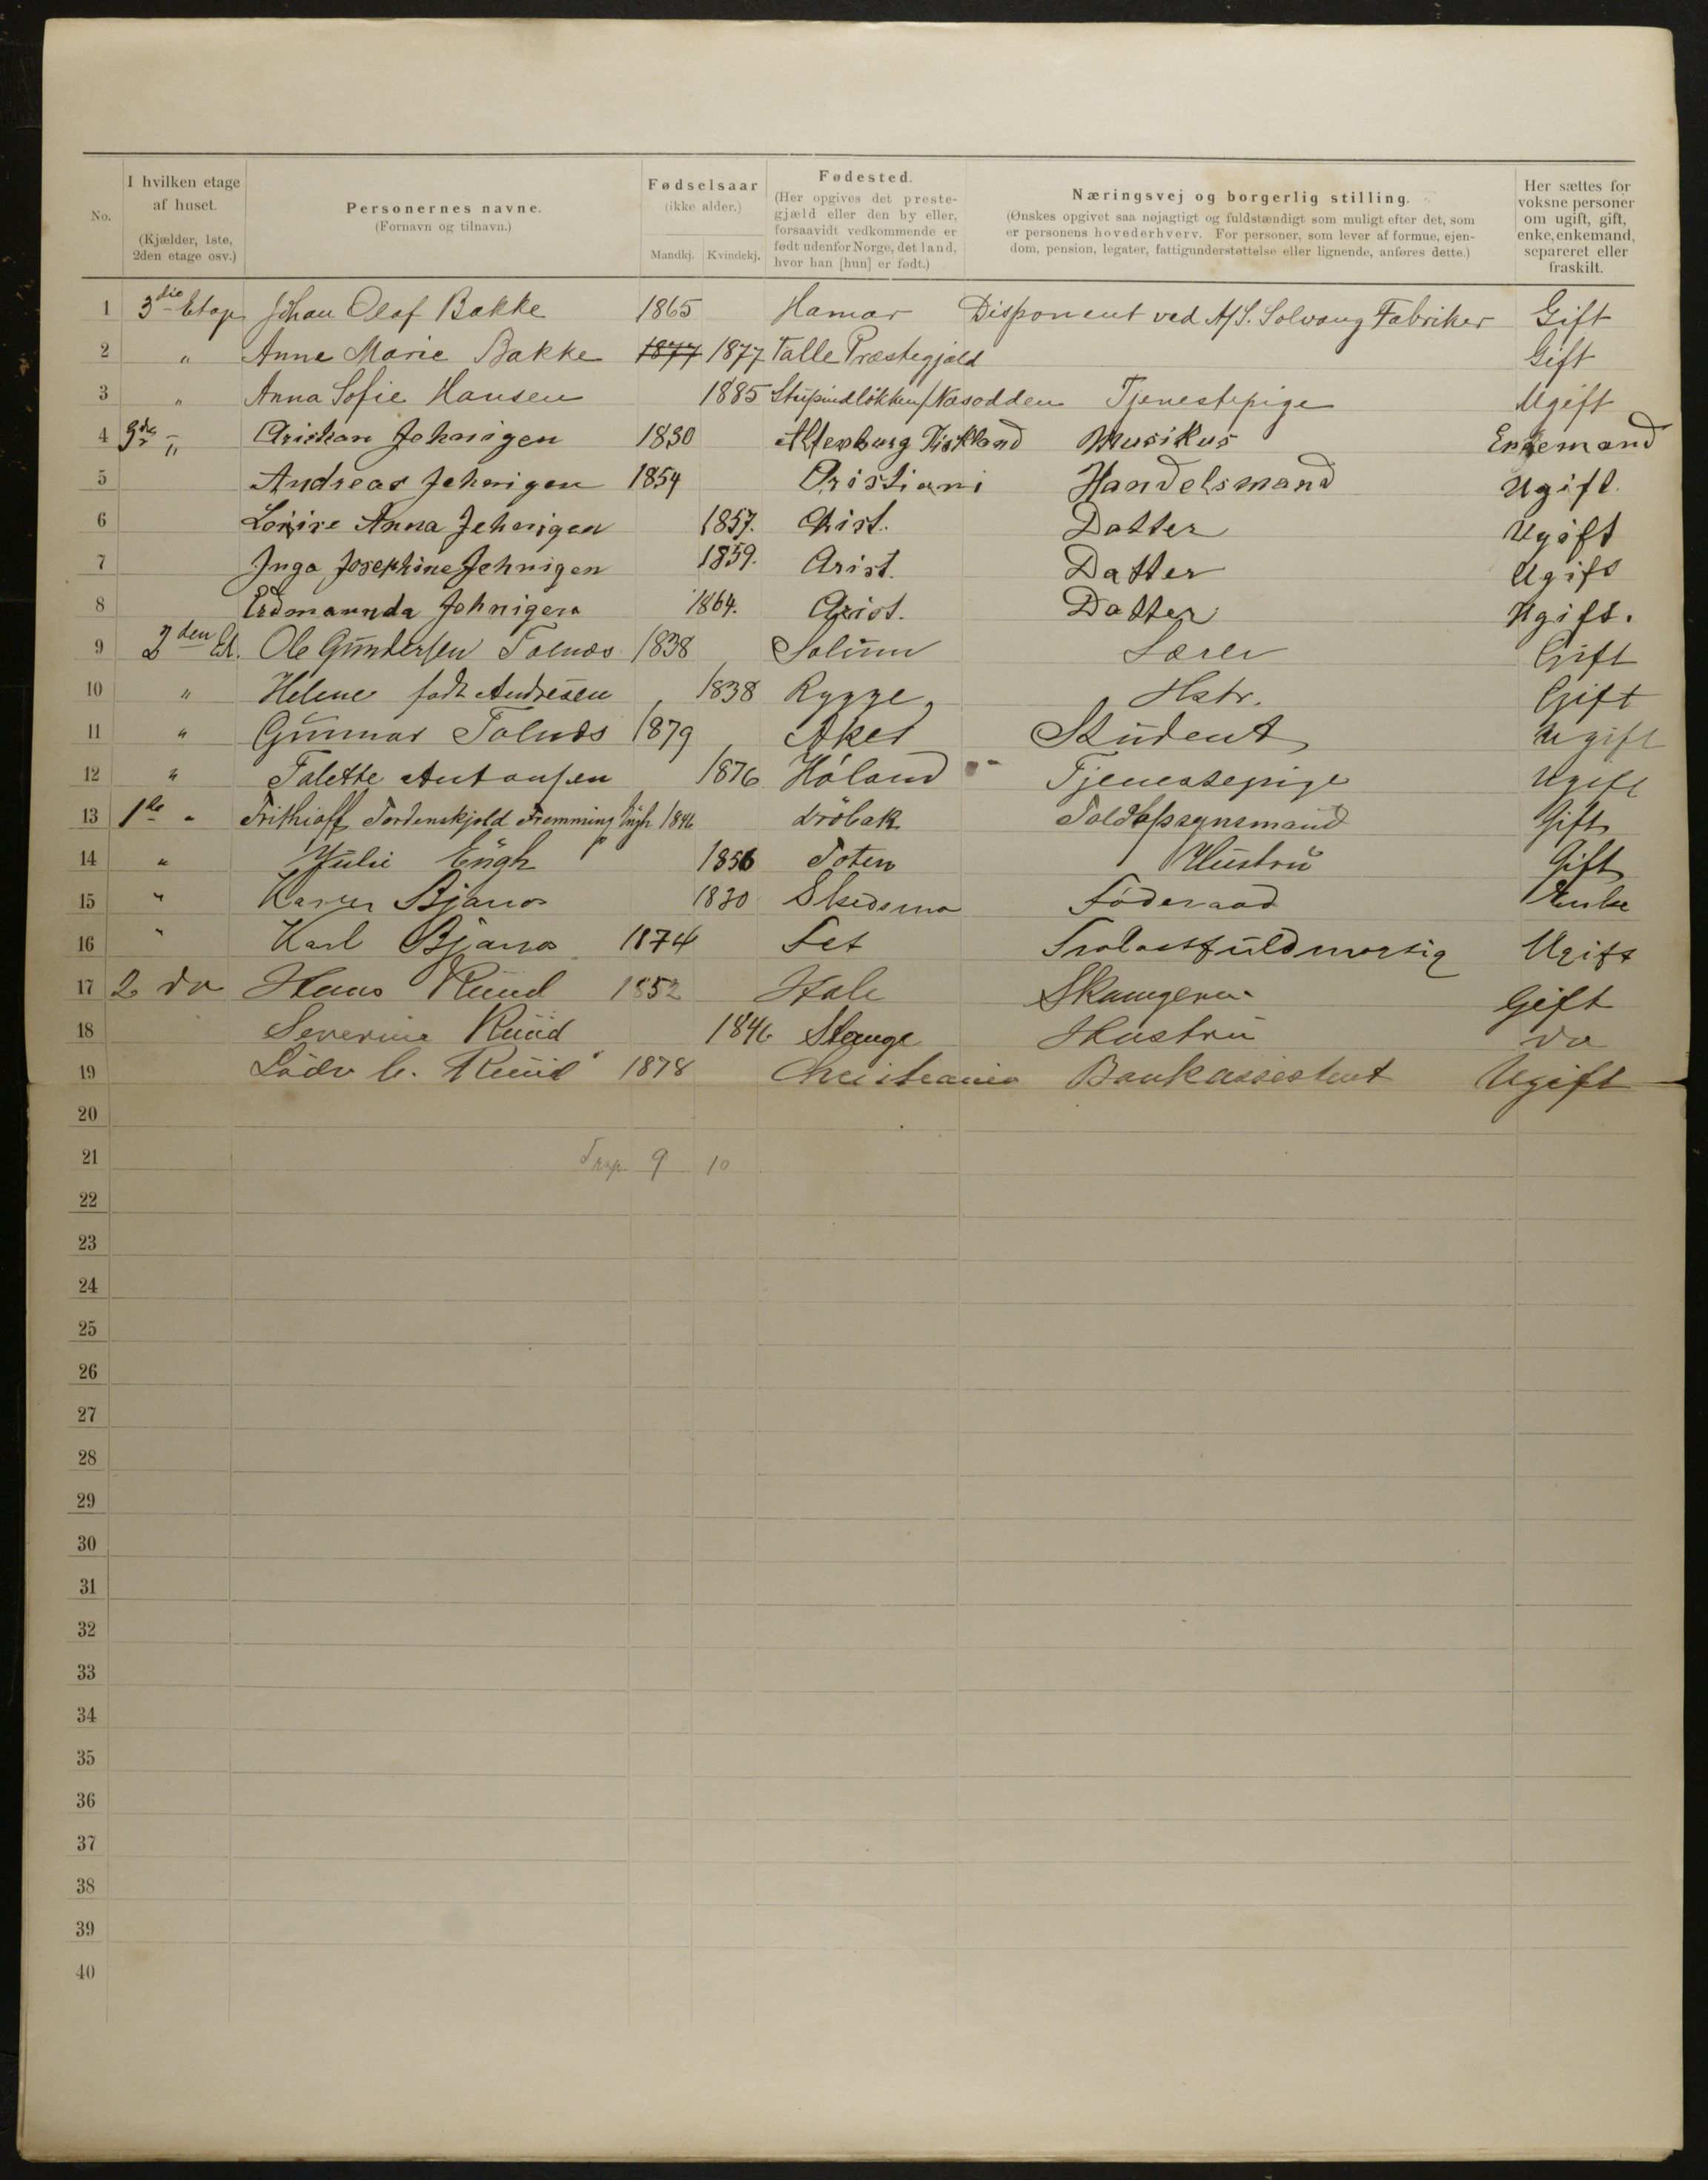 No.
I hvilken etage af huset. (Kjælder, 1ste, 2den etage osv.)
Personernes navne. (Fornavn og tilnavn.)
Fødselsaar (ikke alder.) Mandkj. Kvindekj.
Fødested. (Her opgives det prestegjæld eller den by eller, forsaavidt vedkommende er født udenfor Norge, det land, hvor han [hun] er født.)
Næringsvej og borgerlig stilling. (Ønskes opgivet saa nøjagtigt og fuldstændigt som muligt efter det, som er personens hovederhverv. For personer, som lever af formue, ejendom, pension, legater, fattigunderstøttelse eller lignende, anføres dette.)
Her sættes for voksne personer om ugift, gift, enke, enkemand, separeret eller fraskilt.
1 3die Etage Johan Olaf Bakke 1865 Hamar Disponent ved A/S. Solvang Fabriker Gift
2 " Anne Marie Bakke 1877 1877 Præstegjæld Gift
3 " Anna Sofie Hansen 1885 Næsodden Tjenestepige Ugift
4 3de " Cristian Jehnigen 1830 Altenburg Musikus Enkemand
5 Andreas Jehnigen 1854 Cristiani Handelsmand Ugift.
6 Loüise Anna Jehnigen 1857. Christ. Datter Ugift
7 Inga Josephine Jehnigen 1859. Crist. Datter Ugift
8 Erdmannda Jehnigen 1864. Crist. Datter Ugift.
9 2den Et. Ole Gündersen Tolnæs 1838 Solüm Lærer Gift
10 " Helene født Andresen 1838 Rygge Hstr. Gift
11 " Günnar Tolnæs 1879 Aker Stüdent Ugift
12 " Talette Antonsen 1876 Höland Tjenestepige Ugift
13 1ste " Frithioff Tordenskjold Fremming Engh 1846 Dröbak Toldopsynsmand Gift
14 " Jülie Engh 1856 Toten Hüstrü Gift
15 " Karen Bjanæs 1830 Skedsmo Föderaad Enke
16 " Karl Bjanæs 1874 Fet Ugift
17 2 do Hans Rüüd 1852 Hole Gift
18 Severine Rüüd 1846 Stange Hustrü do
19 C. Rüüd 1878 Christiania Bankassistent Ugift
20
21 9 10
22
23
24
25
26
27
28
29
30
31
32
33
34
35
36
37
38
39
40